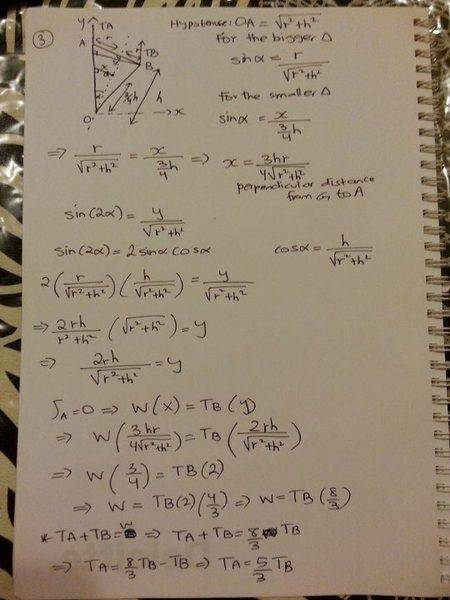 ③
y TA
A r TB
B
x
α
3/4h h
O → x
Hypotenuse: OA = √(r²+h²)
For the bigger Δ
sinα = r/√(r²+h²)
for the smaller Δ
sinα = x/(3/4 h)
⇒ r/√(r²+h²) = x/(3/4 h) ⇒ x = 3hr/4√(r²+h²)
perpendicular distance
from G to A
sin(2α) = y/√(r²+h²)
sin(2α) = 2sinα cosα cosα = h/√(r²+h²)
2(r/√(r²+h²))(h/√(r²+h²)) = y/√(r²+h²)
⇒ 2rh/(r²+h²) (√(r²+h²)) = y
⇒ 2rh/√(r²+h²) = y
ʃA=0 ⇒ W(x) = TB(y)
⇒ W(3hr/4√(r²+h²)) = TB(2rh/√(r²+h²))
⇒ W(3/4) = TB(2)
⇒ W = TB(2)(4/3) ⇒ W = TB(8/3)
* TA + TB = W ⇒ TA + TB = 8/3 TB
⇒ TA = 8/3 TB - TB ⇒ TA = 5/3 TB